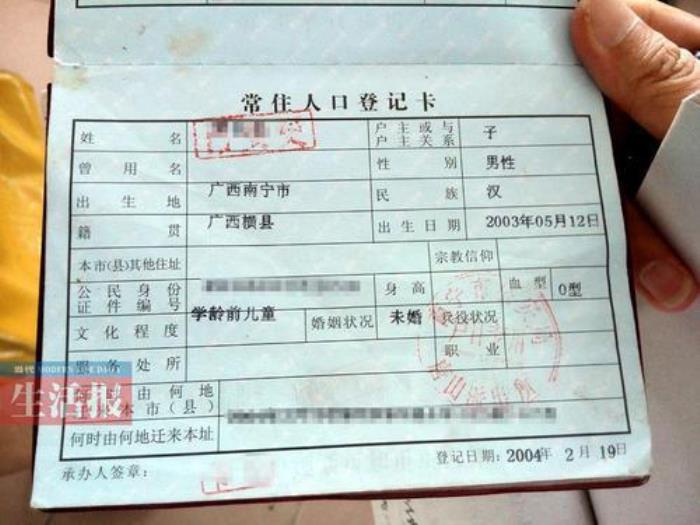 常住人口登记卡
姓名 户主或与户主关系 子
曾用名 性别 男性
出生地 广西南宁市 民族 汉
籍贯 广西横县 出生日期 2003年05月12日
本市(县)其他住址 宗教信仰
公民身份证件编号 身高 血型 O型
文化程度 学龄前儿童 婚姻状况 未婚 兵役状况
服务处所 职业
何时由何地
本市(县)
何时由何地迁来本址
承办人签章: 登记日期:2004年2月19日
当代 MODERN LIFE DAILY
生活报